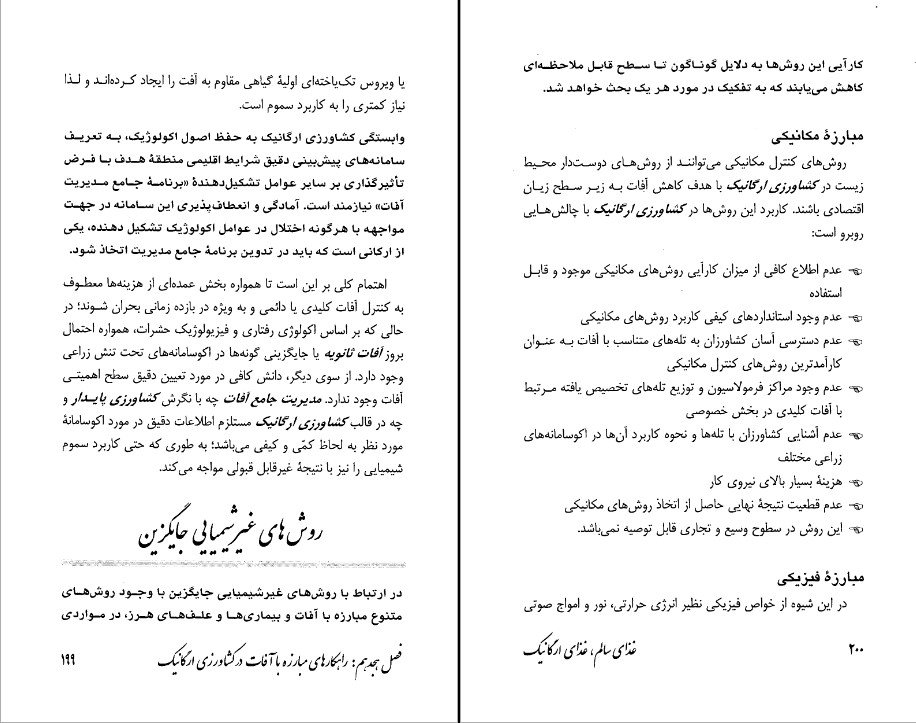 یا ویروس تک‌یاخته‌ای اولیهٔ گیاهی مقاوم به آفت را ایجاد کرده‌اند و لذا
نیاز کمتری را به کاربرد سموم است.
وابستگی کشاورزی ارگانیک به حفظ اصول اکولوژیک، به تعریف
سامانه‌های پیش‌بینی دقیق شرایط اقلیمی منطقهٔ هدف با فرض
تأثیرگذاری بر سایر عوامل تشکیل‌دهندهٔ «برنامهٔ جامع مدیریت
آفات» نیازمند است. آمادگی و انعطاف‌پذیری این سامانه در جهت
مواجهه با هرگونه اختلال در عوامل اکولوژیک تشکیل دهنده، یکی
از ارکانی است که باید در تدوین برنامهٔ جامع مدیریت اتخاذ شود.
اهتمام کلی بر این است تا همواره بخش عمده‌ای از هزینه‌ها معطوف
به کنترل آفات کلیدی یا دائمی و به ویژه در بازده زمانی بحران شوند؛ در
حالی که بر اساس اکولوژی رفتاری و فیزیولوژیک حشرات، همواره احتمال
بروز آفات ثانویه یا جایگزینی گونه‌ها در اکوسامانه‌های تحت تنش زراعی
وجود دارد. از سوی دیگر، دانش کافی در مورد تعیین دقیق سطح اهمیتی
آفات وجود ندارد. مدیریت جامع آفات چه با نگرش کشاورزی پایدار و
چه در قالب کشاورزی ارگانیک مستلزم اطلاعات دقیق در مورد اکوسامانهٔ
مورد نظر به لحاظ کمّی و کیفی می‌باشد؛ به طوری که حتی کاربرد سموم
شیمیایی را نیز با نتیجهٔ غیرقابل قبولی مواجه می‌کند.
روش های غیرشیمیایی جایگزین
در ارتباط با روش‌های غیرشیمیایی جایگزین با وجود روش‌های
متنوع مبارزه با آفات و بیماری‌ها و علف‌های هرز، در مواردی
فصل هجدهم: راهکارهای مبارزه با آفات در کشاورزی ارگانیک
۱۹۹
کارآیی این روش‌ها به دلایل گوناگون تا سطح قابل ملاحظه‌ای
کاهش می‌یابند که به تفکیک در مورد هر یک بحث خواهد شد.
مبارزهٔ مکانیکی
روش‌های کنترل مکانیکی می‌توانند از روش‌های دوست‌دار محیط
زیست در کشاورزی ارگانیک با هدف کاهش آفات به زیر سطح زیان
اقتصادی باشند. کاربرد این روش‌ها در کشاورزی ارگانیک با چالش‌هایی
روبرو است:
☜ عدم اطلاع کافی از میزان کارآیی روش‌های مکانیکی موجود و قابل
استفاده
☜ عدم وجود استانداردهای کیفی کاربرد روش‌های مکانیکی
☜ عدم دسترسی آسان کشاورزان به تله‌های متناسب با آفات به عنوان
کارآمدترین روش‌های کنترل مکانیکی
☜ عدم وجود مراکز فرمولاسیون و توزیع تله‌های تخصیص یافته مرتبط
با آفات کلیدی در بخش خصوصی
☜ عدم آشنایی کشاورزان با تله‌ها و نحوه کاربرد آن‌ها در اکوسامانه‌های
زراعی مختلف
☜ هزینهٔ بسیار بالای نیروی کار
☜ عدم قطعیت نتیجهٔ نهایی حاصل از اتخاذ روش‌های مکانیکی
☜ این روش در سطوح وسیع و تجاری قابل توصیه نمی‌باشد.
مبارزهٔ فیزیکی
در این شیوه از خواص فیزیکی نظیر انرژی حرارتی، نور و امواج صوتی
غذای سالم، غذای ارگانیک
۲۰۰